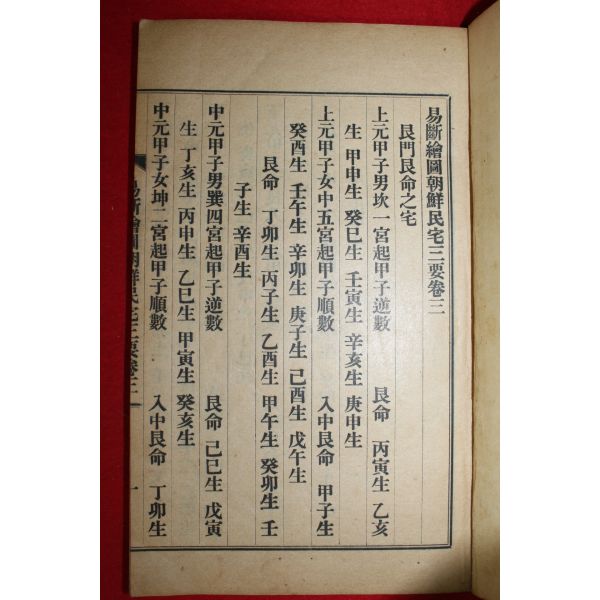 易斷繪圖朝鮮民宅三要卷三
艮門艮命之宅
上元甲子男坎一宮起甲子逆數 艮命 丙寅生 乙亥
生 甲申生 癸巳生 壬寅生 辛亥生 庚申生
上元甲子女中五宮起甲子順數 入中艮命 甲子生
癸酉生 壬午生 辛卯生 庚子生 己酉生 戊午生
艮命 丁卯生 丙子生 乙酉生 甲午生 癸卯生 壬
子生 辛酉生
中元甲子男巽四宮起甲子逆數 艮命 己巳生 戊寅
生 丁亥生 丙申生 乙巳生 甲寅生 癸亥生
中元甲子女坤二宮起甲子順數 入中艮命 丁卯生
易斷繪圖朝鮮民宅三要卷三 一